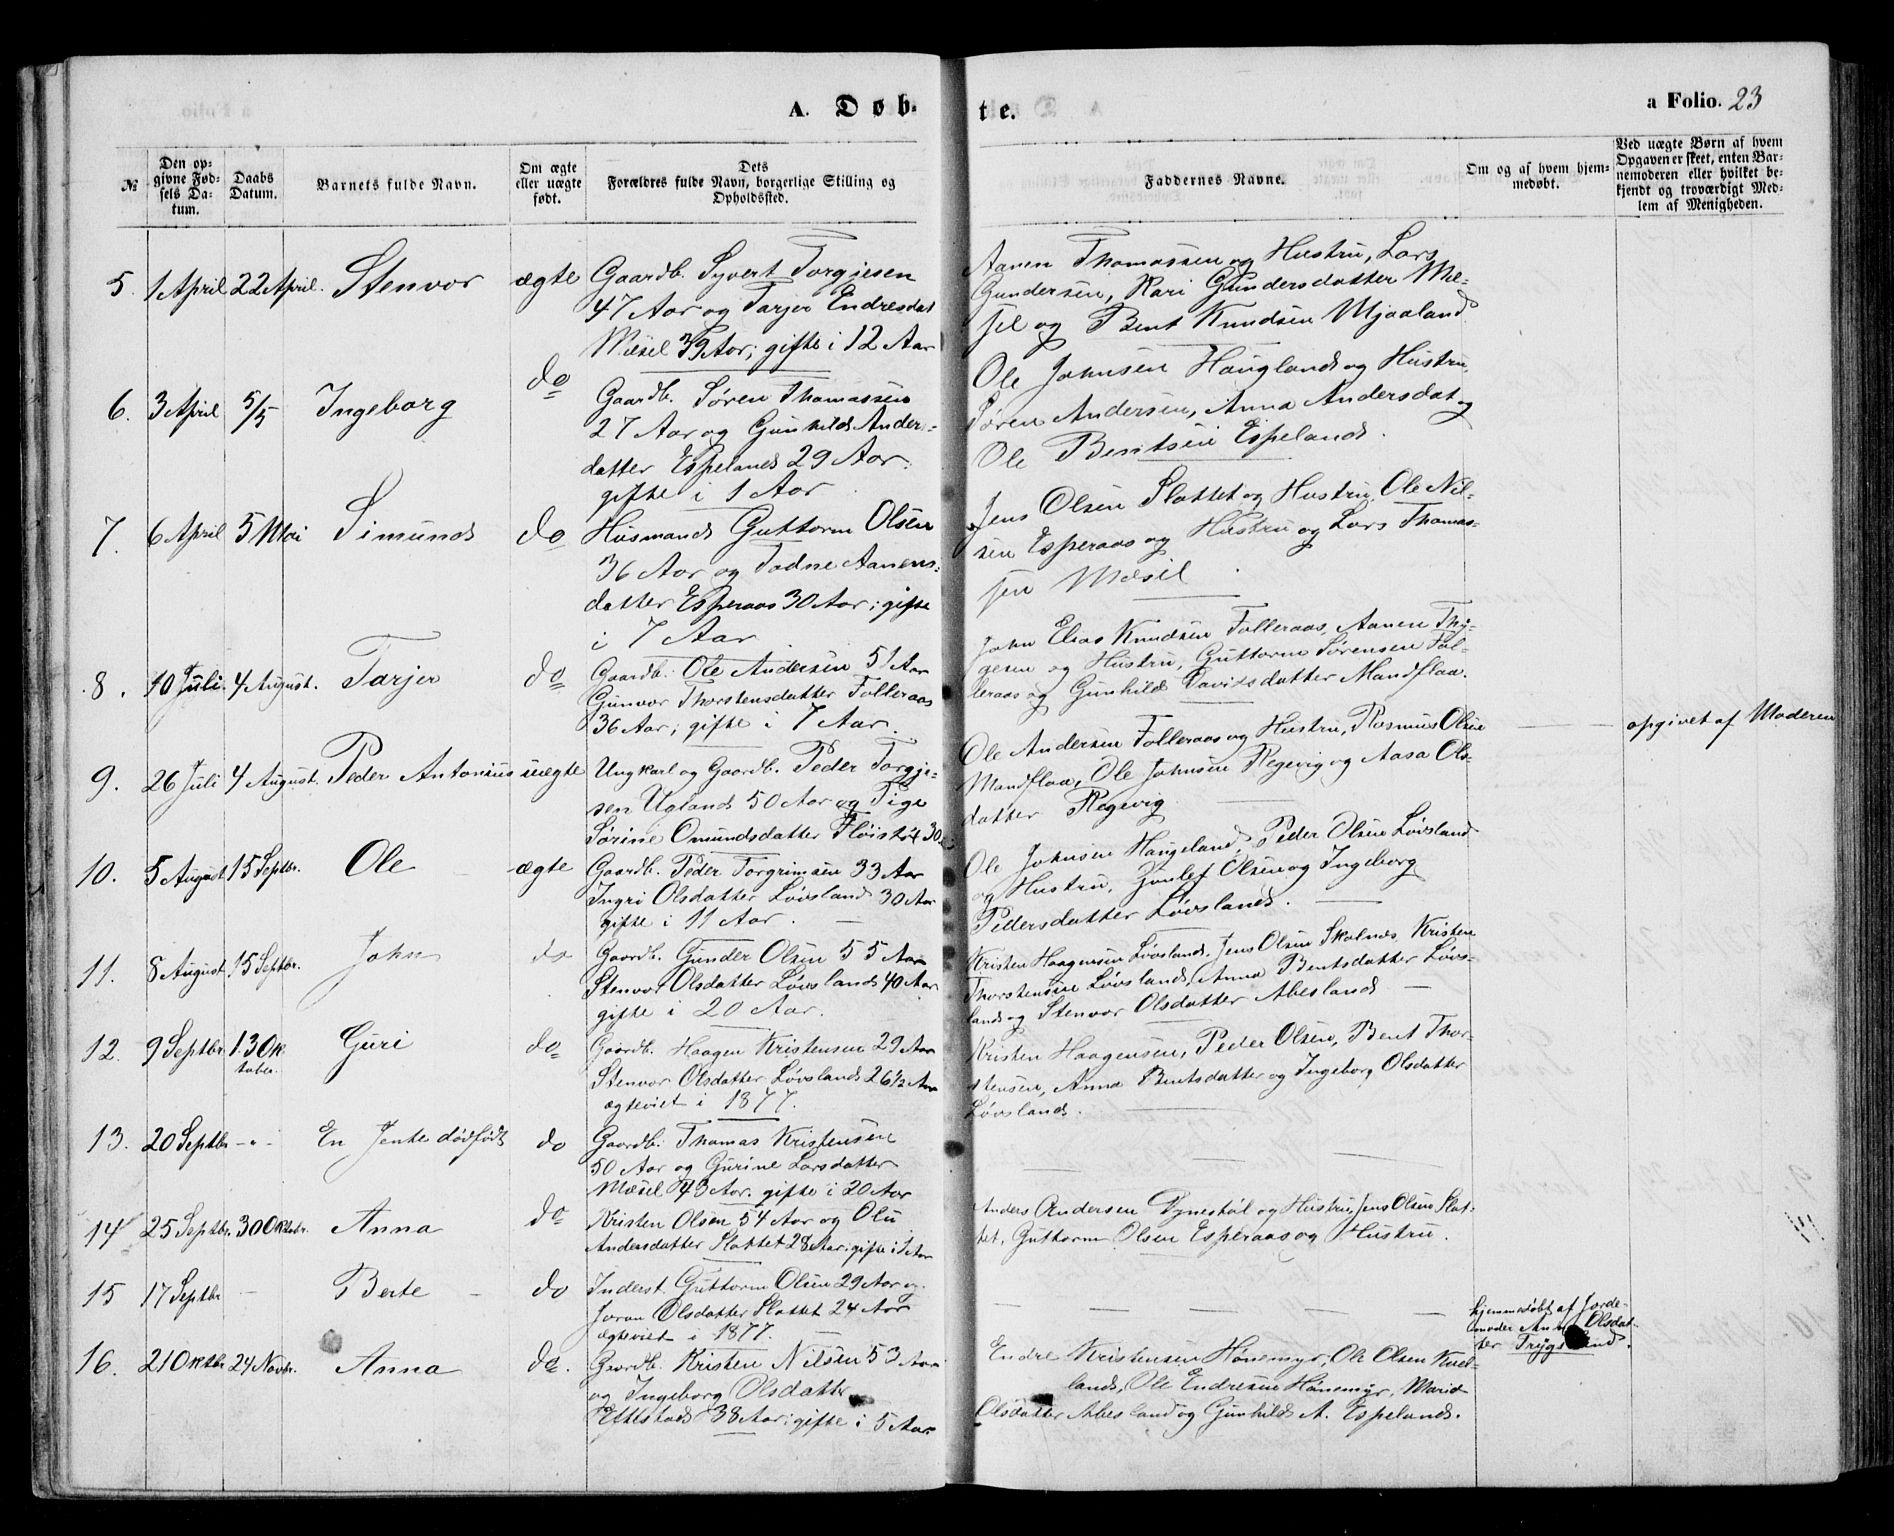 A. Døb-
te.
a Folio. 23
№
Den op-
givne Fød-
sels Da-
tum.
Daabs
Datum.
Barnets fulde Navn.
Om ægte
eller uægte
født.
Dets
Forældres fulde Navn, borgerlige Stilling og
Opholdssted.
Faddernes Navne.
Om og af hvem hjem-
medøbt.
Ved uægte Børn af hvem
Opgaven er skeet, enten Bar-
nemoderen eller hvilket be-
kjendt og troværdigt Med-
lem af Menigheden.
5. 1 April 22 April. Stenvor ægte
Gaardb. Syvert Torgjesen
47 Aar og Tarjer Endresdat
Mæsel 39 Aar; gifte i 12 Aar
Aanen Thomassen og Hustru, Lars
Gundersen, Kari Gundersdatter Mæ-
sel og Bent Knudsen Mjaaland
6. 3 April 5/5 Ingeborg do
Gaardb. Søren Thomassen
27 Aar og Gunhild Ander-
datter Espeland 29 Aar.
gifte i 1 Aar
Ole Johnsen Haugland og Hustru
Søren Andersen, Anna Andersdat og
Ole Bentsen Espeland.
7. 6 April 5 Mai Simund do
Husmand Guttorm Olsen
36 Aar og Todne Aanens-
datter Esperaas 30 Aar; gifte
i 7 Aar
Jens Olsen Slottet og Hustru, Ole Nil-
sen Esperaas og Hustru og Lars Thomas-
sen Mæsel.
8. 10 Juli 4 August. Tarjer do
Gaardb. Ole Andersen 51 Aar
Gunvor Thorstensdatter Folleraas
36 Aar; gifte i 7 Aar.
John Elias Knudsen Folleraas, Aanen Thy-
gesen og Hustru, Guttorm Sørensen Fol-
leraas og Gunhild Davidsdatter Mandflaa.
9. 26 Juli 4 August. Peder Antonius uægte
Ungkarl og Gaardb. Peder Torgje-
sen Ugland 50 Aar og Pige
Sørine Omundsdatter Fløistøl 30
Ole Andersen Folleraas og Hustru, Rasmus Olsen
Mandflaa, Ole Johnsen Regevig og Aasa Ols-
datter Regevig
opgivet af Moderen
10. 5 August 15 Septbr. Ole ægte
Gaardb. Peder Torgrimsen 33 Aar
Ingri Olsdatter Løvsland 30 Aar
gifte i 11 Aar.
Ole Johnsen Haugeland, Peder Olsen Løvsland
og Hustru, Olsen og Ingeborg
Pedersdatter Løvsland.
11. 8 August 15 Septbr. John do
Gaardb. Gunder Olsen 55 Aar
Stenvor Olsdatter Løvsland 40 Aar
gifte i 20 Aar.
Kristen Haagensen Løvsland, Jens Olsen Skalnes, Kristen
Thorstensen Løvsland, Anna Bentsdatter Løvs-
land og Stenvor Olsdatter Abesland
12. 9 Septbr. 13 Ok
tober. Guri do
Gaardb. Haagen Kristensen 29 Aar
Stenvor Olsdatter Løvsland 26 1/2 Aar
ægteviet i 1877.
Kristen Haagensen, Peder Olsen, Bent Thor-
stensen, Anna Bentsdatter og Ingeborg Olsdatter
Løvsland.
13. 20 Septbr - " - En Jente dødfødt do
Gaardb. Thomas Kristensen
50 Aar og Gurine Larsdatter
Mæsel 43 Aar. gifte i 20 Aar
14 25 Septbr. 30 Oktobr. Anna do
Kristen Olsen 54 Aar og Olu
Andersdatter Slottet 28 Aar; gifte i 1 Aar
Anders Andersen Dynestøl og Hustru, Jens Olsen Slot-
tet, Guttorm Olsen Esperaas og Hustru.
15 17 Septbr Berte do
Inderst Guttorm Olsen 29 Aar og
Joran Olsdatter Slottet 24 Aar
ægteviet i 1877.
hjemmedøbt af Jorde-
moder Anne Olsdat-
ter Trygsland.
16. 21 Oktbr 24 Novbr. Anna do.
Gaardb. Kristen Nilsen 53 Aar
og Ingeborg Olsdatter
38 Aar; gifte i 5 Aar
Endre Kristensen Hønemyr, Ole Olsen Kvel-
land, Ole Endresen Hønemyr, Marie
Olsdatter Abesland og Gunhild A. Espeland.